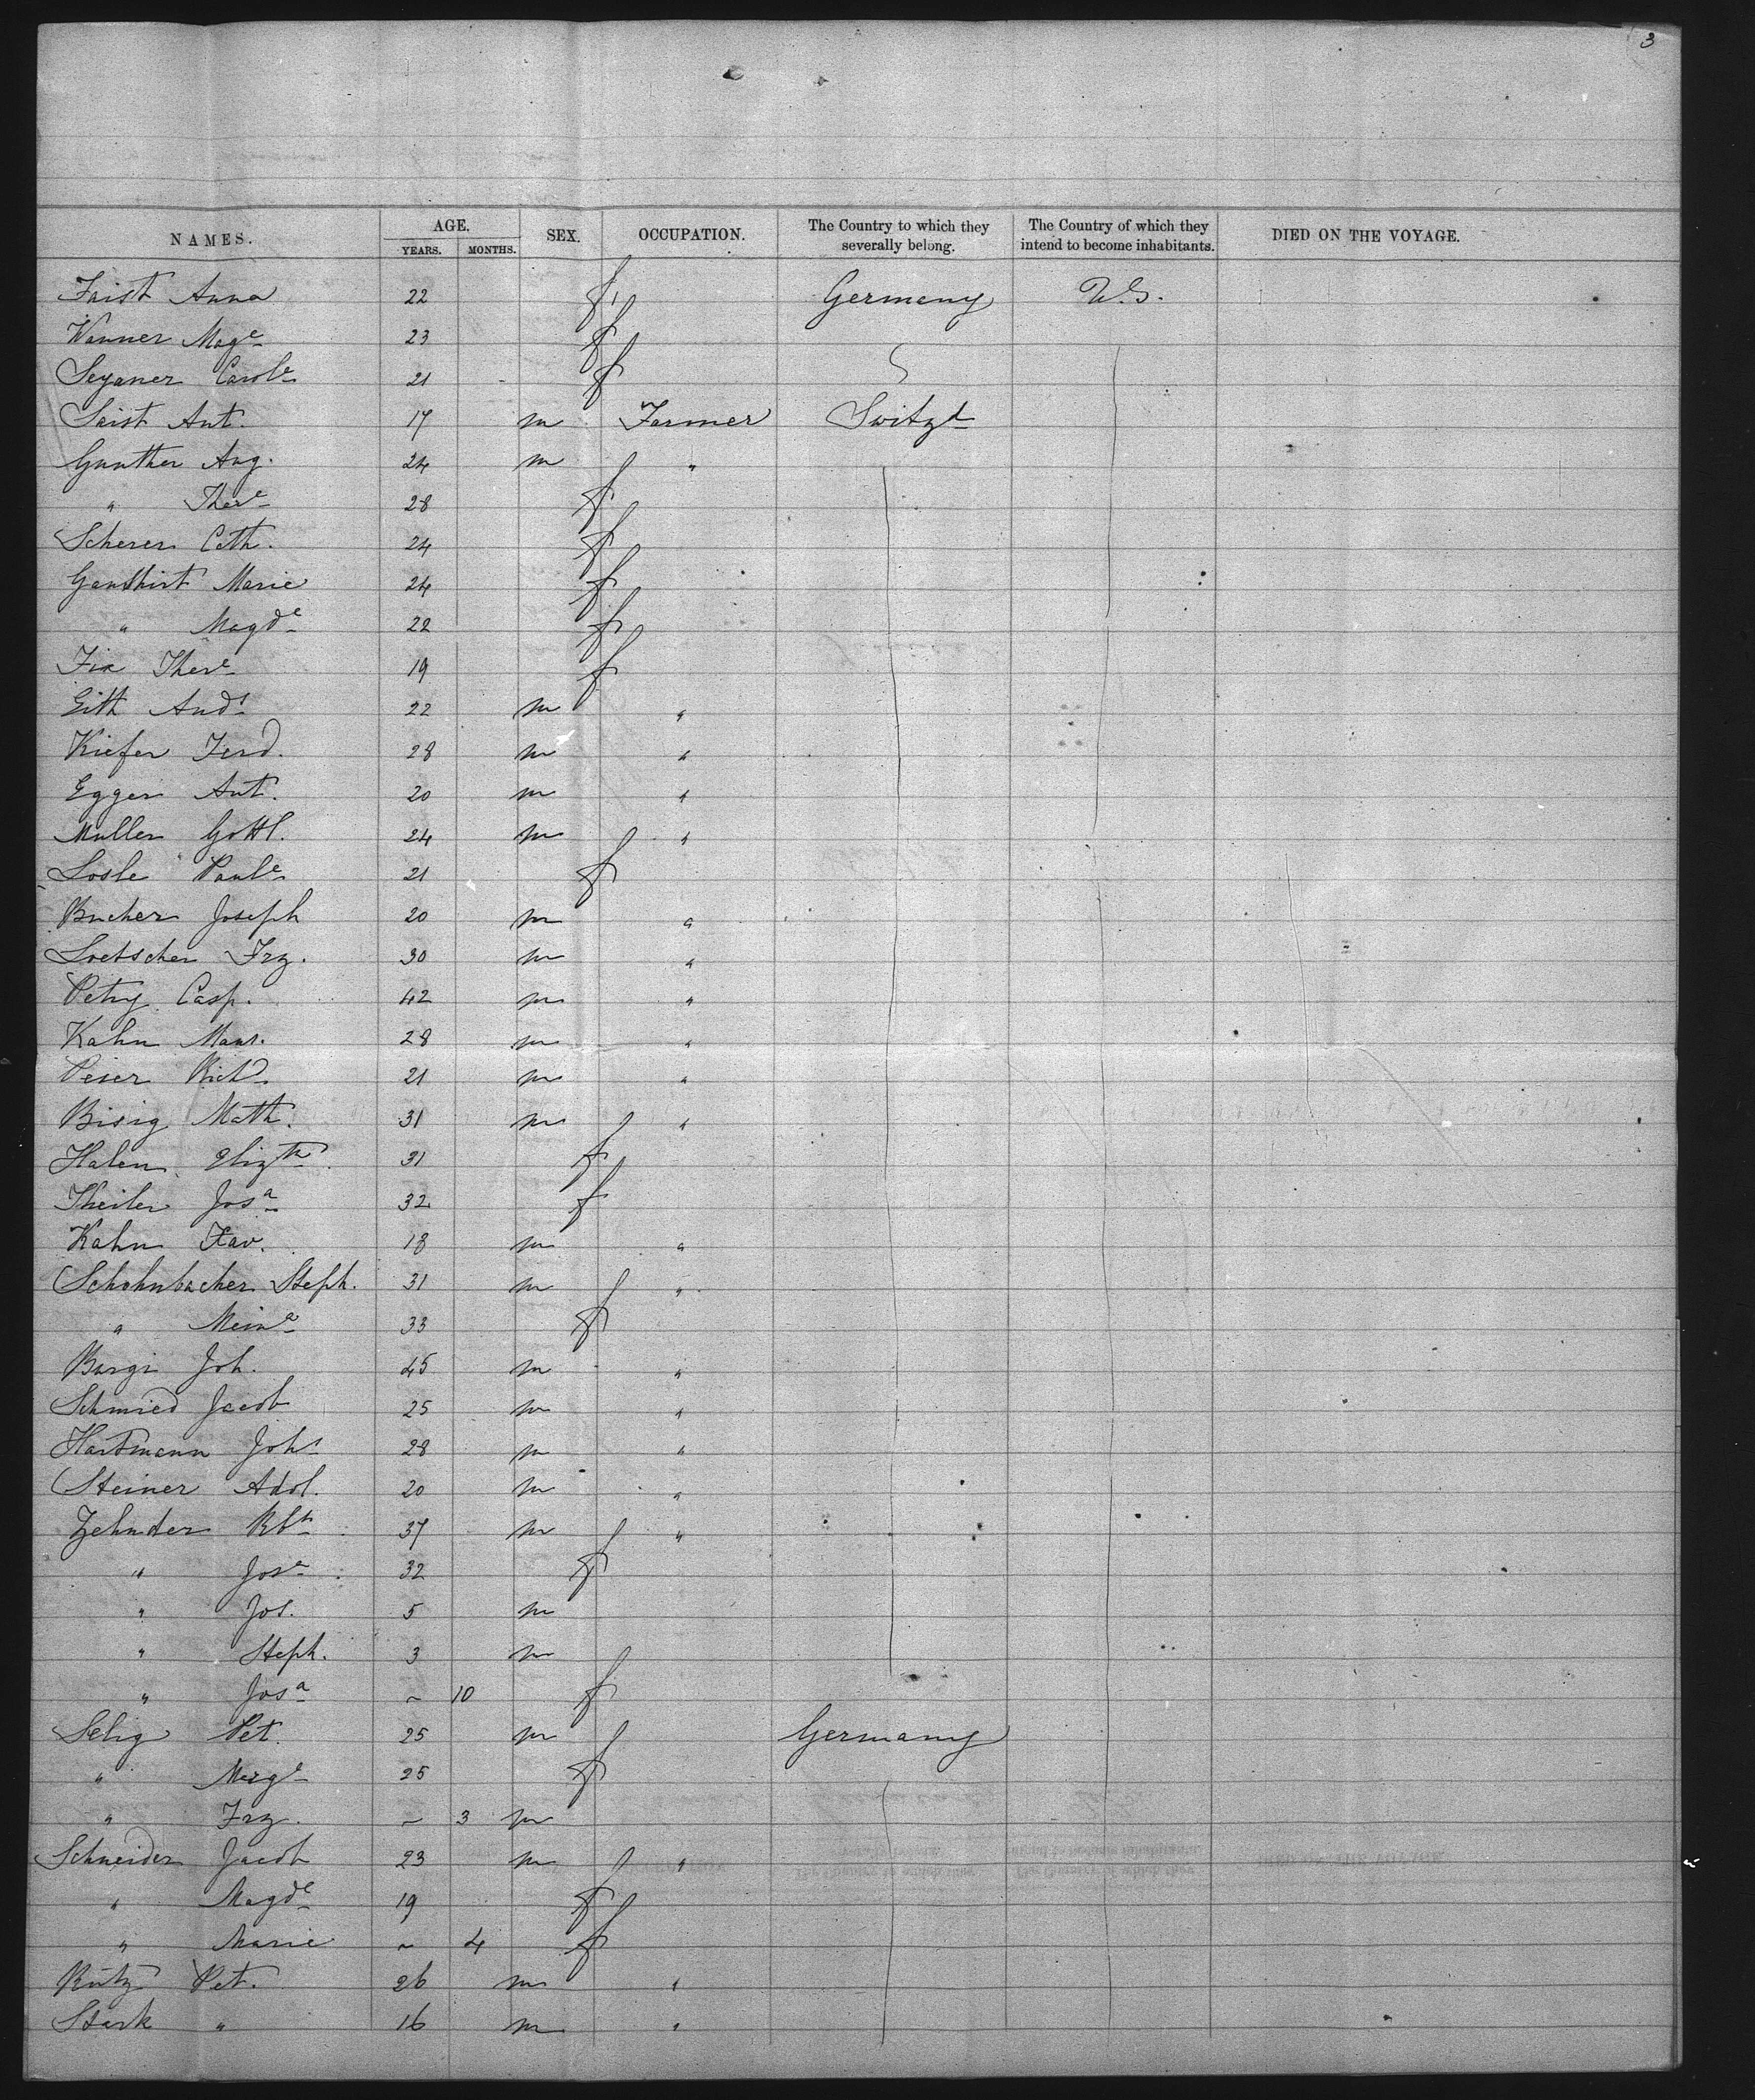 3
NAMES. AGE. YEARS. MONTHS. SEX. OCCUPATION. The Country to which they severally belong. The Country of which they intend to become inhabitants. DIED ON THE VOYAGE.
Faist Anna 22 f Germany U.S.
Wanner Mag^e 23 f
Seyaner Carol^e 21 f
Saist Ant. 17 m Farmer Switz^d
Gunther Aug. 24 m "
" Ther^e 28 f
Scherer Cath. 24 f
Ganshirt Marie 24 f
" Magd^e 22 f
Fix Ther^e 19 f
Eith And^s 22 m "
Kiefer Ferd. 28 m "
Egger Ant. 20 m "
Muller Gottl. 24 m "
Losle Paul^e 21 f
Bucher Joseph 20 m "
Loetscher Frz. 30 m "
Petry Casp. 42 m "
Kahn Maur. 28 m "
Peier Rich^d 21 m "
Bisig Math. 31 m "
Halen Eliz^th 31 f
Theiler Jos^a 32 f
Kahn Xav. 18 m "
Schohnbacher Steph. 31 m "
" Mein^a 33 f
Burgi Joh. 45 m "
Schmied Jacob 25 m "
Hartmann Joh^s 28 m "
Steiner Adol. 20 m "
Zehnder Rb^t 37 m "
" Jos^a 32 f
" Jos. 5 m
" Steph. 3 m
" Jos^a ~ 10 f
Selig Pet. 25 m Germany
" Marg^e 25 f
" Frz. ~ 3 m
Schneider Jacob 23 m "
" Magd^e 19 f
" Marie ~ 4 f
Rutz Pet. 26 m "
Stark " 16 m "